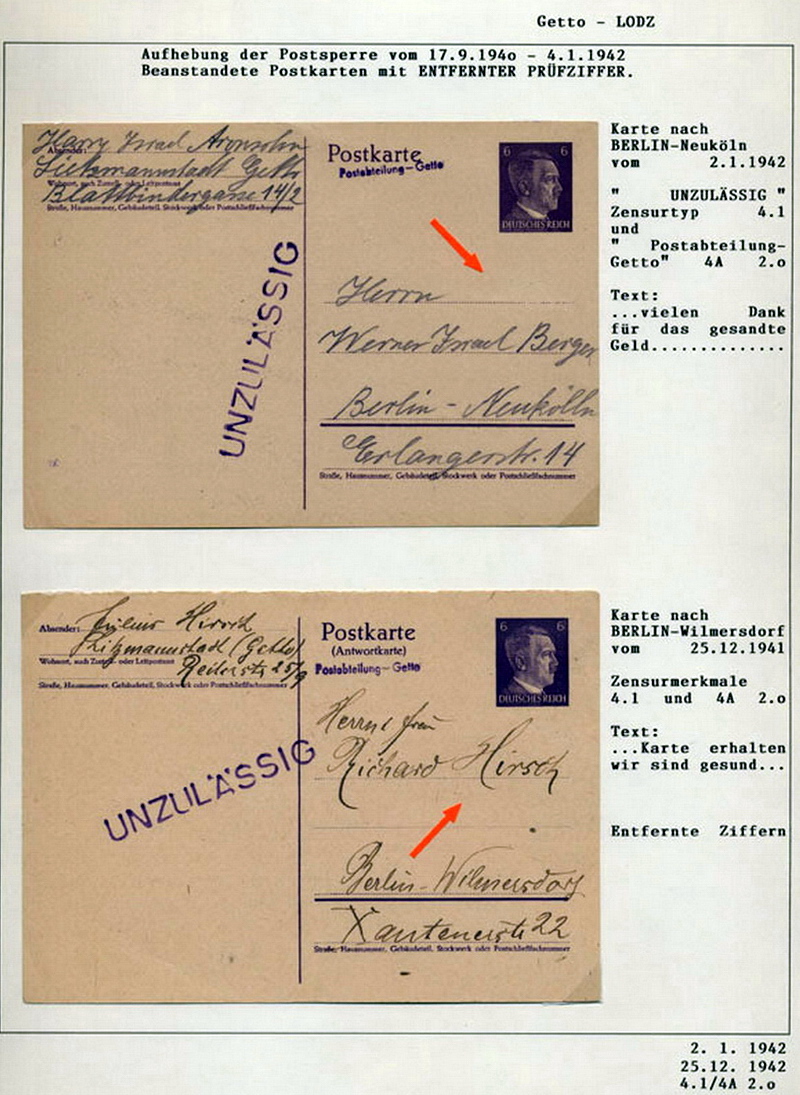 Getto - LODZ
Aufhebung der Postsperre vom 17.9.194o - 4.1.1942
Beanstandete Postkarten mit ENTFERNTER PRÜFZIFFER.
Harry Israel Aronsohn
Absender:
Litzmannstadt Getto
Wohnort, auch Zustell- oder Leitpostamt
Blattbindergasse 14/2
Straße, Hausnummer, Gebäudeteil, Stockwerk oder Postschließfachnummer
UNZULÄSSIG
Postkarte
Postabteilung-Getto
6 6
DEUTSCHES REICH
Herrn
Werner Israel Berger
Berlin - Neukölln
Erlangerstr. 14
Straße, Hausnummer, Gebäudeteil, Stockwerk oder Postschließfachnummer
Karte nach
BERLIN-Neuköln
vom 2.1.1942
" UNZULÄSSIG "
Zensurtyp 4.1
und
" Postabteilung-
Getto" 4A 2.o
Text:
...vielen Dank
für das gesandte
Geld..............
Absender: Hirsch
Litzmannstadt (Getto)
Wohnort, auch Zustell- oder Leitpostamt
Reiterstr. 25/9
Straße, Hausnummer, Gebäudeteil, Stockwerk oder Postschließfachnummer
UNZULÄSSIG
Postkarte
(Antwortkarte)
Postabteilung-Getto
6 6
DEUTSCHES REICH
Herrn Frau
Richard Hirsch
Berlin-Wilmersdorf
Xantenerstr 22
Straße, Hausnummer, Gebäudeteil, Stockwerk oder Postschließfachnummer
Karte nach
BERLIN-Wilmersdorf
vom 25.12.1941
Zensurmerkmale
4.1 und 4A 2.o
Text:
...Karte erhalten
wir sind gesund...
Entfernte Ziffern
2. 1. 1942
25.12. 1942
4.1/4A 2.o